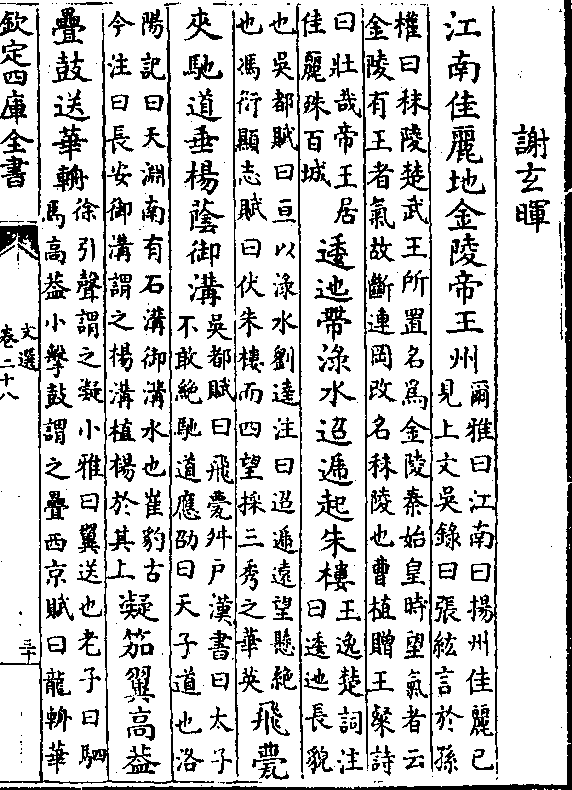 謝玄暉
江南佳麗地金陵帝王州
爾雅曰江南曰揚州佳麗已
見上文吳錄曰張紘言於孫
權曰秣陵楚武王所置名爲金陵秦始皇時望氣者云
金陵有王者氣故斷連岡改名秣陵也曹植贈王粲詩
曰壯哉帝王居
佳麗殊百城
逶迆帶淥水迢遞起朱樓
王逸楚詞注
曰逶迆長貌
也吳都賦曰亘以淥水劉逵注曰迢遞遠望懸絶
也馮衍顯志賦曰伏朱樓而四望採三秀之華英
飛甍
夾馳道垂楊蔭御溝
吳都賦曰飛甍舛戸漢書曰太子
不敢絶馳道應劭曰天子道也洛
陽記曰天淵南有石溝御溝水也崔豹古
今注曰長安御溝謂之楊溝植楊於其上
凝笳翼高葢
疊鼓送華輈
徐引聲謂之凝小雅曰翼送也老子曰駟
馬高葢小擊鼓謂之疊西京賦曰龍輈華
欽定四庫全書
文選
卷二十八
三十